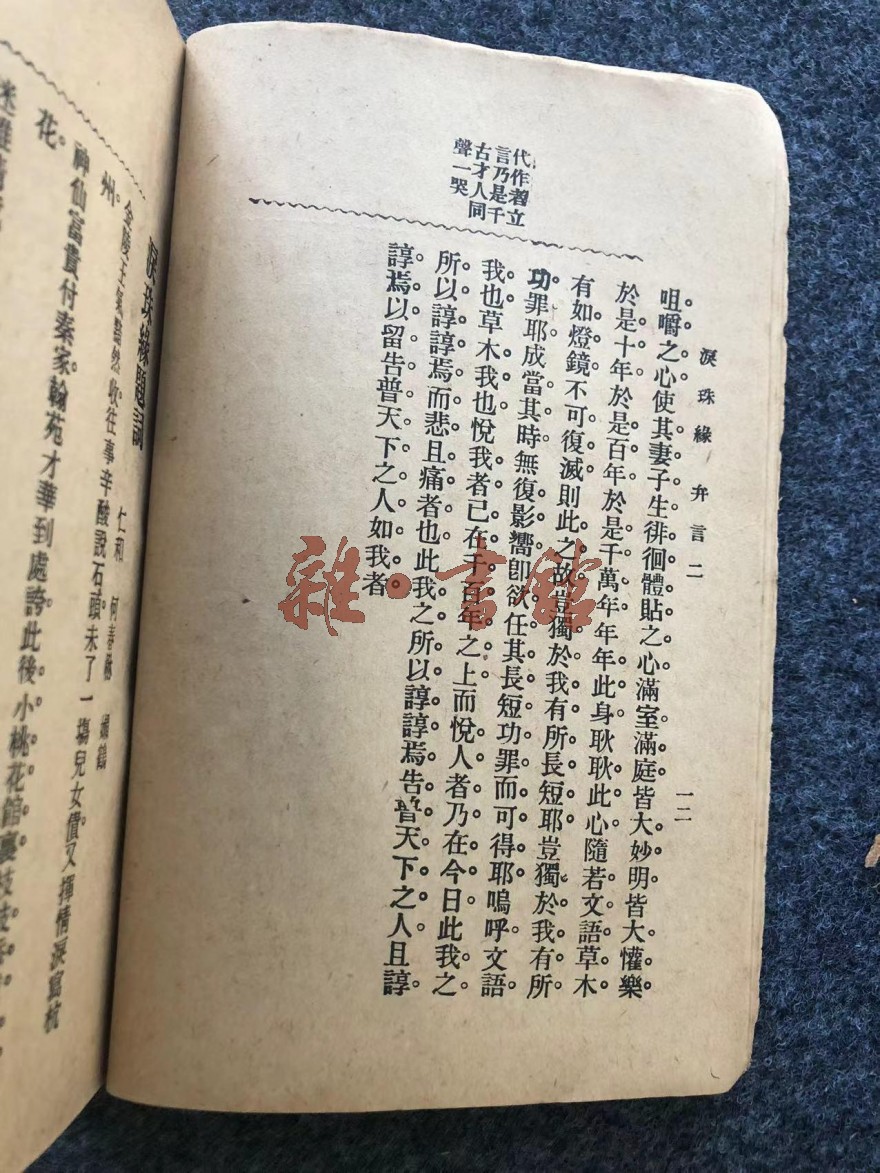 淚珠緣 弁言二
一二
代作者立
言乃是千
古才人同
聲一哭
咀嚼之心使其妻子生徘徊體貼之心滿室滿庭皆大妙明皆大懽樂
於是十年於是百年於是千萬年年年此身耿耿此心隨若文語草木
有如燈鏡不可復滅則此之故豈獨於我有所長短耶豈獨於我有所
功罪耶成當其時無復影嚮卽欲任其長短功罪而可得耶嗚呼文語
我也草木我也悅我者已在千百年之上而悅人者乃在今日此我之
所以諄諄焉而悲且痛者也此我之所以諄諄焉告普天下之人且諄
諄焉以留告普天下之人如我者
雜·書館
淚珠緣題詞
仁和 何春楙
金陵王氣黯然收往事辛酸說石頭未了一塲兒女債又揮情淚寫杭
州
神仙富貴付秦家翰苑才華到處誇此後小桃花館裏枝枝
花